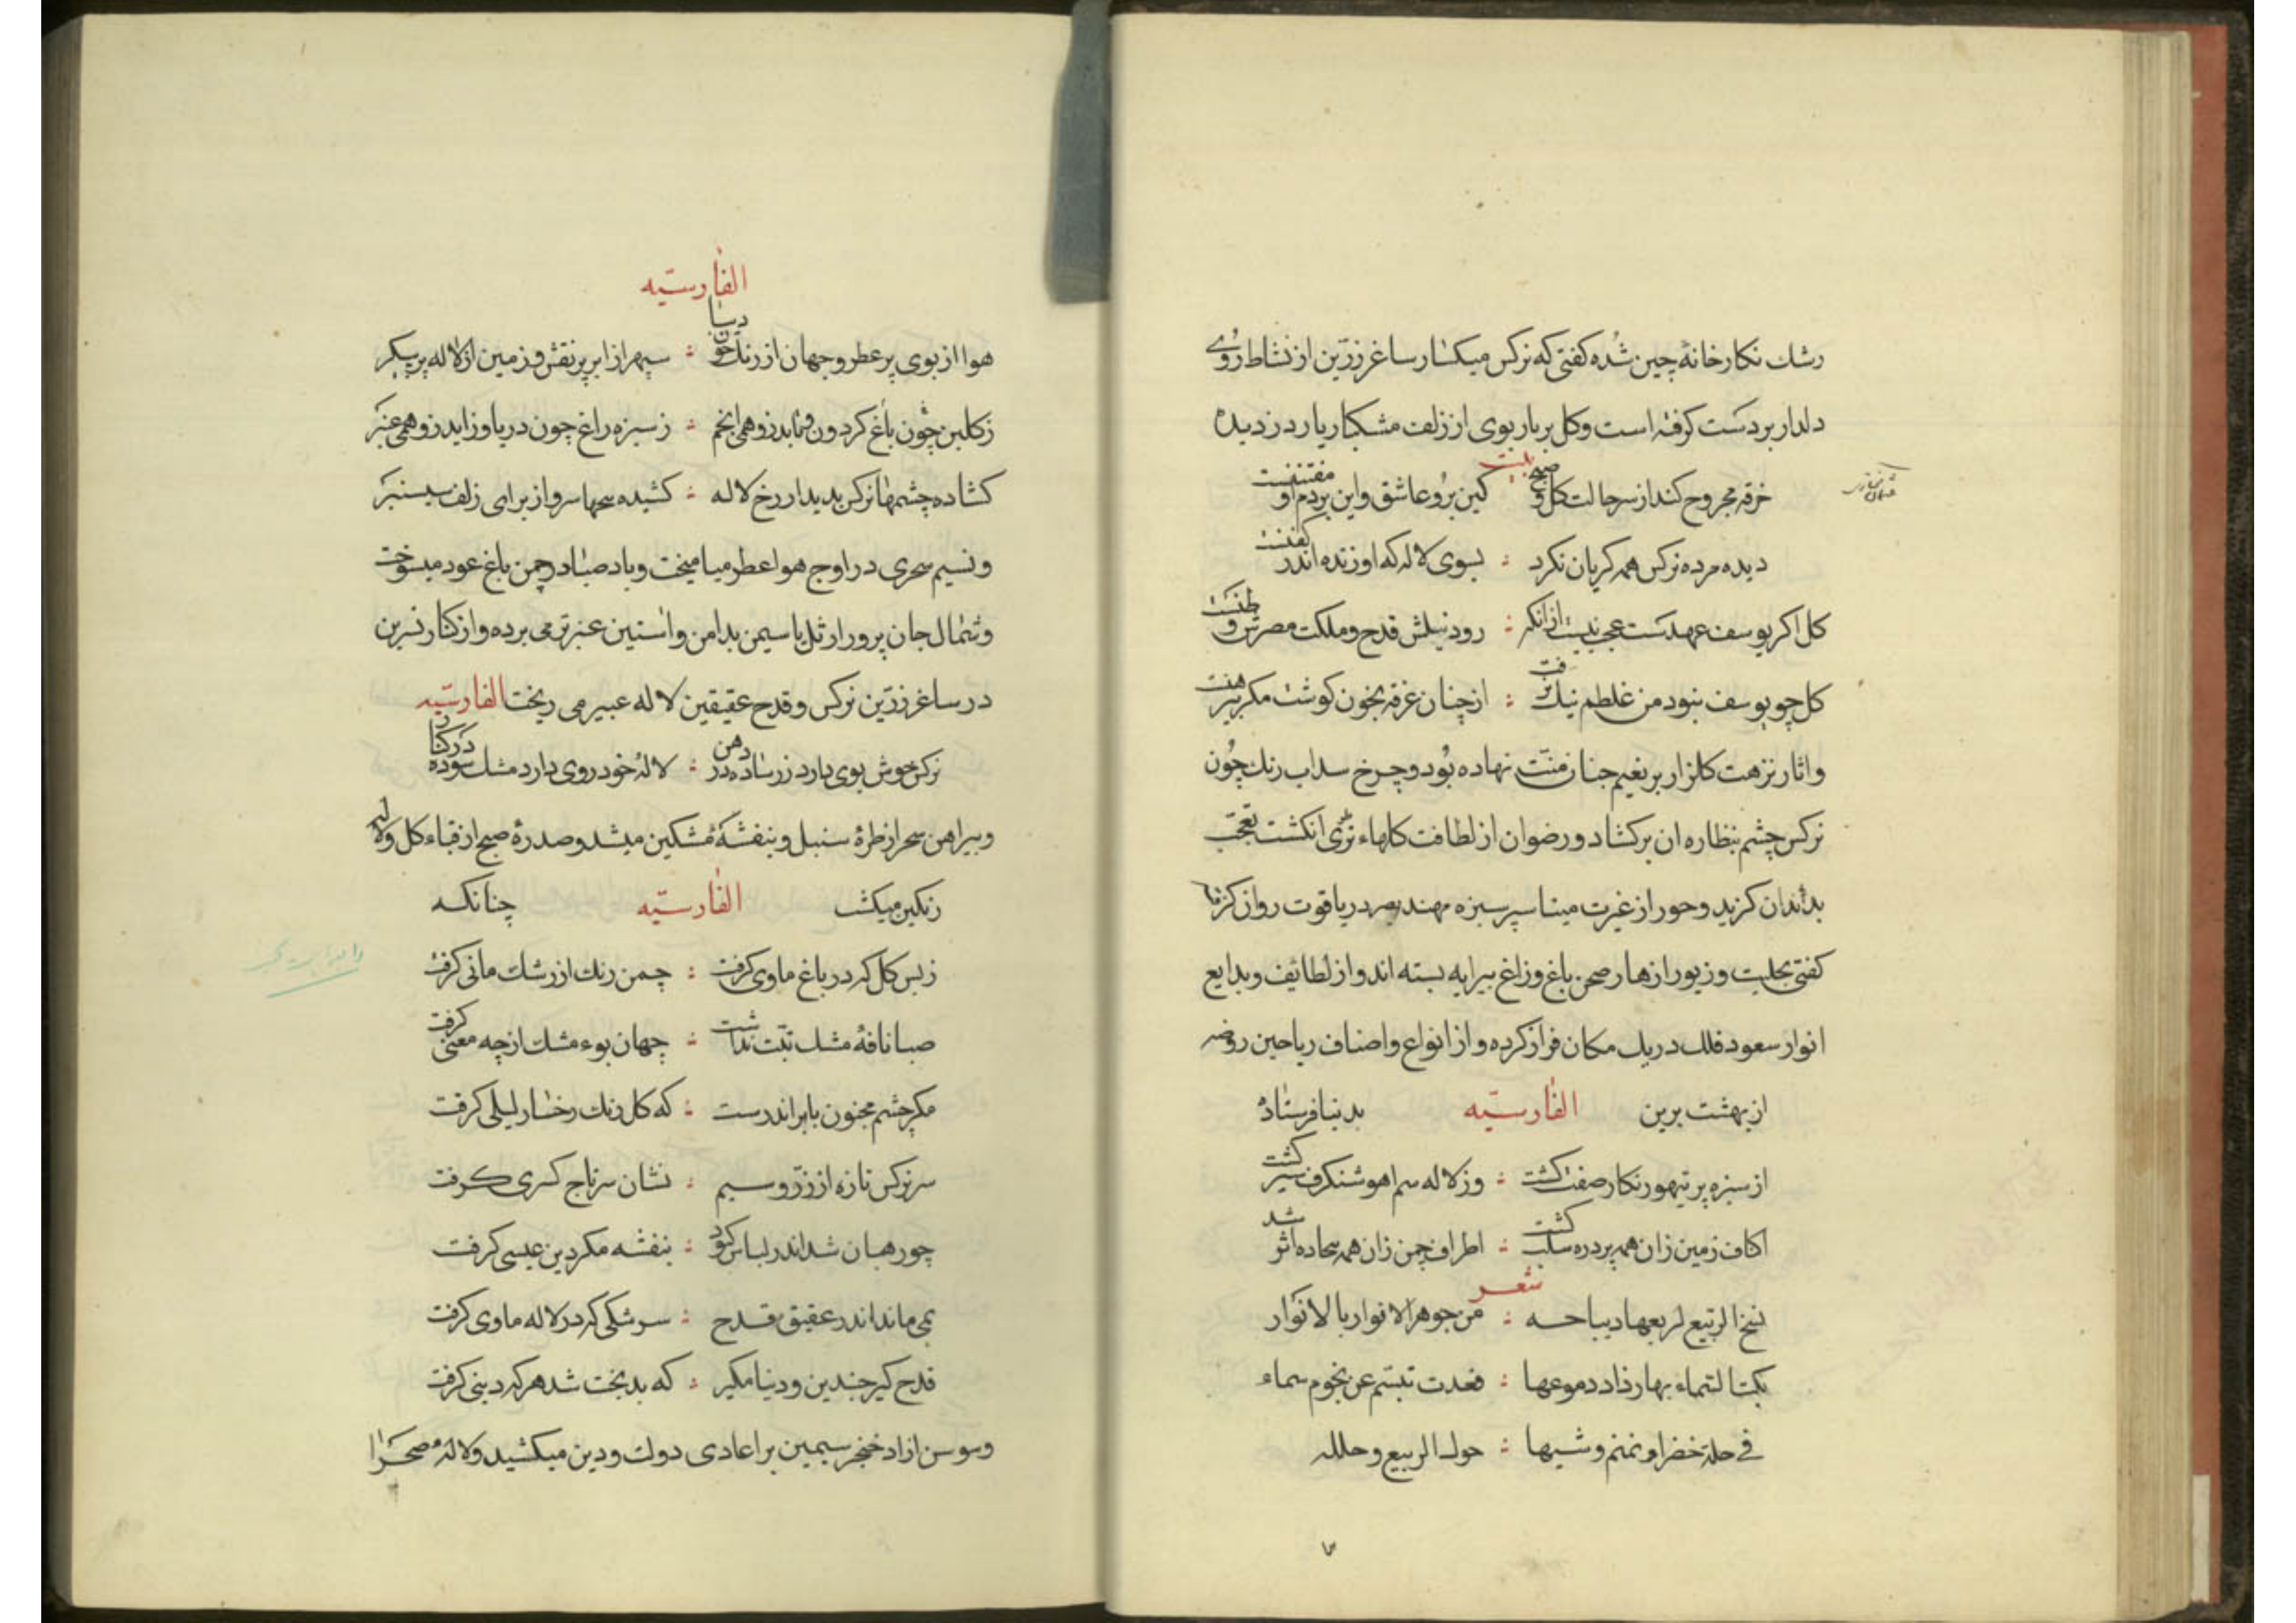 رشك نكارخانهٔ چين شده كفتى كه نركس ميكسار ساغر زرّين از نشاط روُى
دلدار بر دست كرفته است وكل بربار بوى از زلف مشكبار يار دزديده
بيت
خرقه مجروح كند از سر حالت كل و صبح كين برو عاشق و اين بر دم او مفتتنست
ديده مرده نركس همه كريان نكرد : بسوى لاله كه او زنده اندر كفنست
كل اكر يوسف عهدست عجب نيست از انكه : رود نيلش قدح و ملكت مصرش وطنست
كل چو يوسف نبود من غلطم نيك برفت : از چنان غرفه بخون كوشت مكر پيرهنست
و اثار نزهت كلزار بر نعيم جنان منّت نهاده بُود و چرخ سداب رنك چُون
نركس چشم بنظاره ان بركشاد و رضوان از لطافت كلهاء طرى انكشت تعجّب
بدندان كزيد و حور از غيرت مينا سپر سبزه مهند بصر در ياقوت روان كرفت
كفتى بحليت و زيور ازهار صحن باغ و راغ پيرايه بسته اند و از لطائف و بدايع
انوار سعود فلك در يك مكان فراز كرده و از انواع و اصناف رياحين روضه
از بهشت برين الفارسيّه بدنيا فرستاده
از سبزه پر تيهو زنكار صفت كشت : وز لاله سم اهو شنكرف سير كشت
اكناف زمين زان همه پر درّه سلب كشت : اطراف چمن زان همه بيجاده اثر شد
شعر
نسخ الربيع لربعها ديباجه : من جوهر الانوار بالانوار
بكت السّماء بها رذاذ دموعها : فغدت تبسّم عن نجوم سماء
فى حلة خضراء نمنم وشيها : حوك الربيع وحلله
الفارسيّه
هوا از بوى پر عطر و جهان از رنك چون ديبا : سپهر از ابر پر نقش و زمين از لاله پر پيكر
ز كلبن چون باغ كردون و تابد زو همى انجم : ز سبزه راغ چون دريا و زايد زو همى عنبر
كشاده چشمها نركس بديدار رخ لاله : كشيده سحها سرو از براى زلف سيسنبر
و نسيم سحرى در اوج هوا عطر ميا ميخت و باد صبا در چمن باغ عود ميسوخت
و شمال جان پرور از تل ياسيمن بدامن و استين عنبر تر مى برده و از كنار نسرين
در ساغر زرّين نركس و قدح عقيقين لاله عبير مى ريخت الفارسيّه
نركس خوش بوى دارد زر ساده در دهن : لالهٔ خود روى دارد مشك سوده در كنار
و پيراهن سحر از طرهٔ سنبل و بنفشهٔ مُشكين ميشد و صدرهٔ صبح از قباء كل و لاله
رنكين ميكشت الفارسيّه چنانكه
ز بس كل كه در باغ ماوى كرفت : چمن رنك ار رشك مانى كرفت
صبا نافهٔ مشك تبّت نداشت : جهان بوء مشك از چه معنى كرفت
مكر چشم مجنون بابر اندرست : كه كل رنك رخسار ليلى كرفت
سر نركس تازه از زرّ و سيم : نشان سر تاج كسرى كرفت
چو رهبان شد اندر لباس كبود : بنفشه مكر دين عيسى كرفت
بمى ماند اندر عقيقين قدح : سرشكى كه در لاله ماوى كرفت
قدح كير چندين و دنيا مكير : كه بدبخت شد هر كه دينى كرفت
و سوسن ازاد خنجر سيمين بر اعادى دولت و دين ميكشيد و لالهٔ صحرا